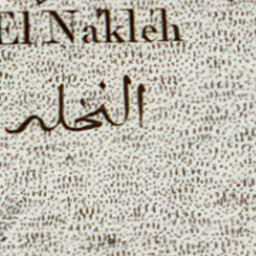 El Nakleh
النخله